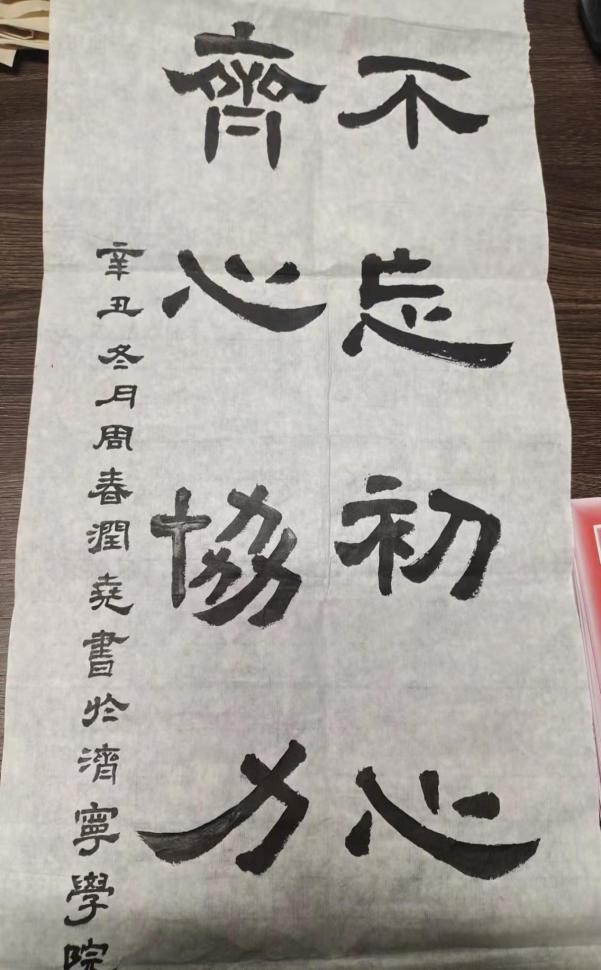 不忘初心
齊心協力
辛丑冬月周春潤堯書於濟寧學院